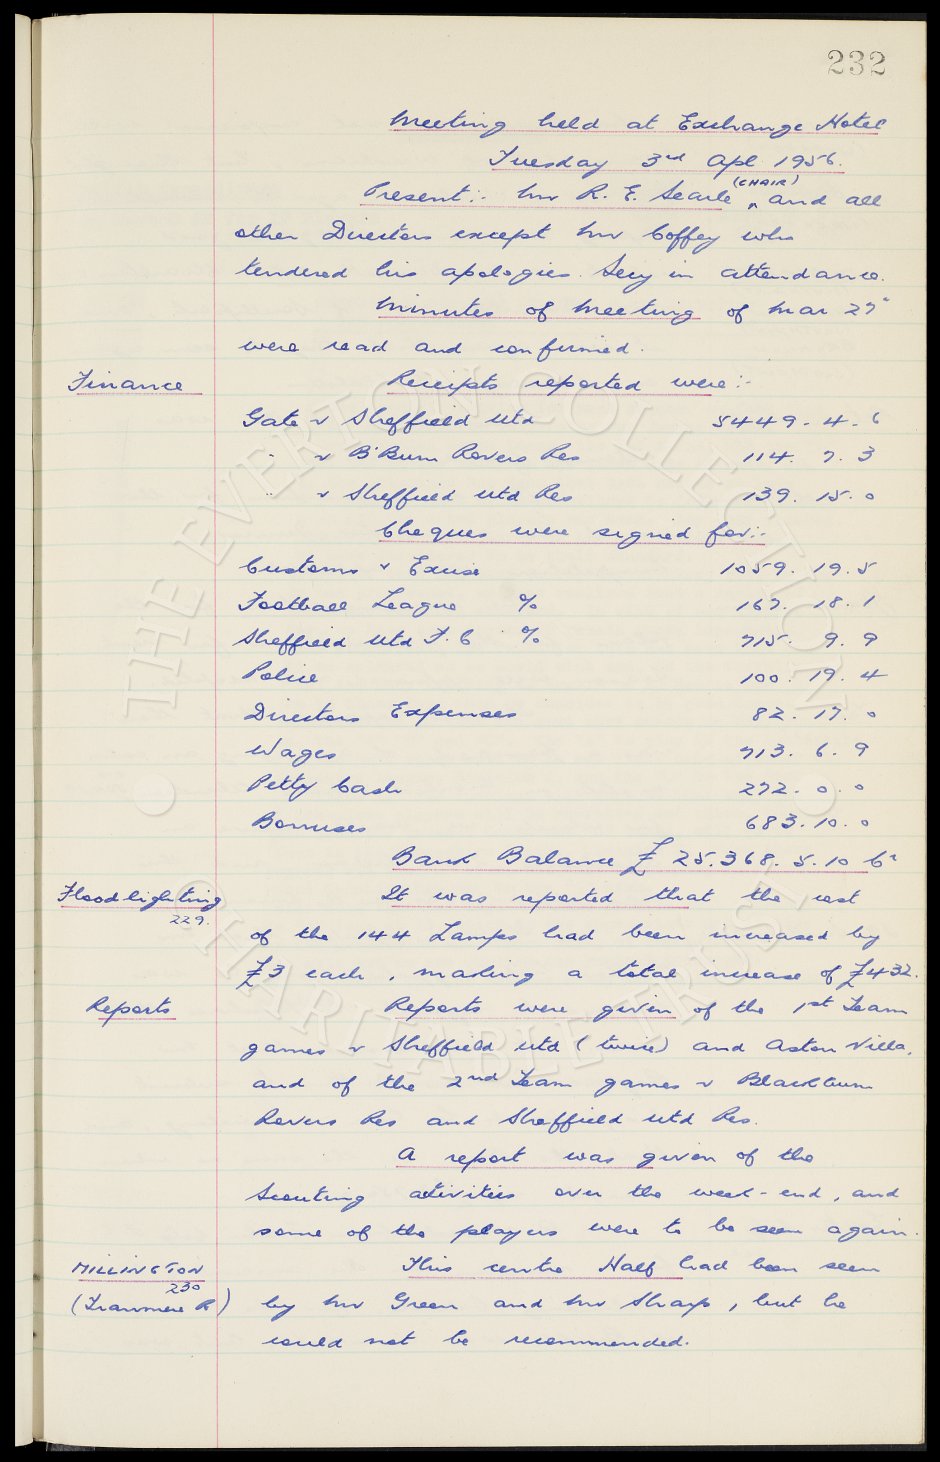 232
Meeting held at Exchange Hotel
Tuesday 3rd Apl 1956.
(CHAIR)
Present:- Mr R. E. Searle ^ and all
other Directors except Mr Coffey who
tendered his apologies. Secy in attendance.
Minutes of Meeting of Mar 27"
were read and confirmed.
Finance Receipts reported were:-
Gate v Sheffield Utd 5449. 4. 6
" v B'Burn Rovers Res 114. 7. 3
" v Sheffield Utd Res 139. 15. 0
Cheques were signed for:-
Customs & Excise 1059. 19. 5
Football League % 167. 18. 1
Sheffield Utd F. C % 715. 9. 9
Police 100. 19. 4
Directors Expenses 82. 17. 0
Wages 713. 6. 9
Petty Cash 272. 0. 0
Bonuses 683. 10. 0
Bank Balance £ 25.368. 5. 10 Cr
Floodlighting It was reported that the cost
229.
of the 144 Lamps had been increased by
£3 each, making a total increase of £432.
Reports Reports were given of the 1st Team
games v Sheffield Utd (twice) and Aston Villa,
and of the 2nd Team games v Blackburn
Rovers Res and Sheffield Utd Res.
A report was given of the
Scouting activities over the week-end, and
some of the players were to be seen again.
MILLINGTON This centre Half had been seen
230
(Tranmere R) by Mr Green and Mr Sharp, but he
could not be recommended.
THE EVERTON COLLECTION
CHARITABLE TRUST